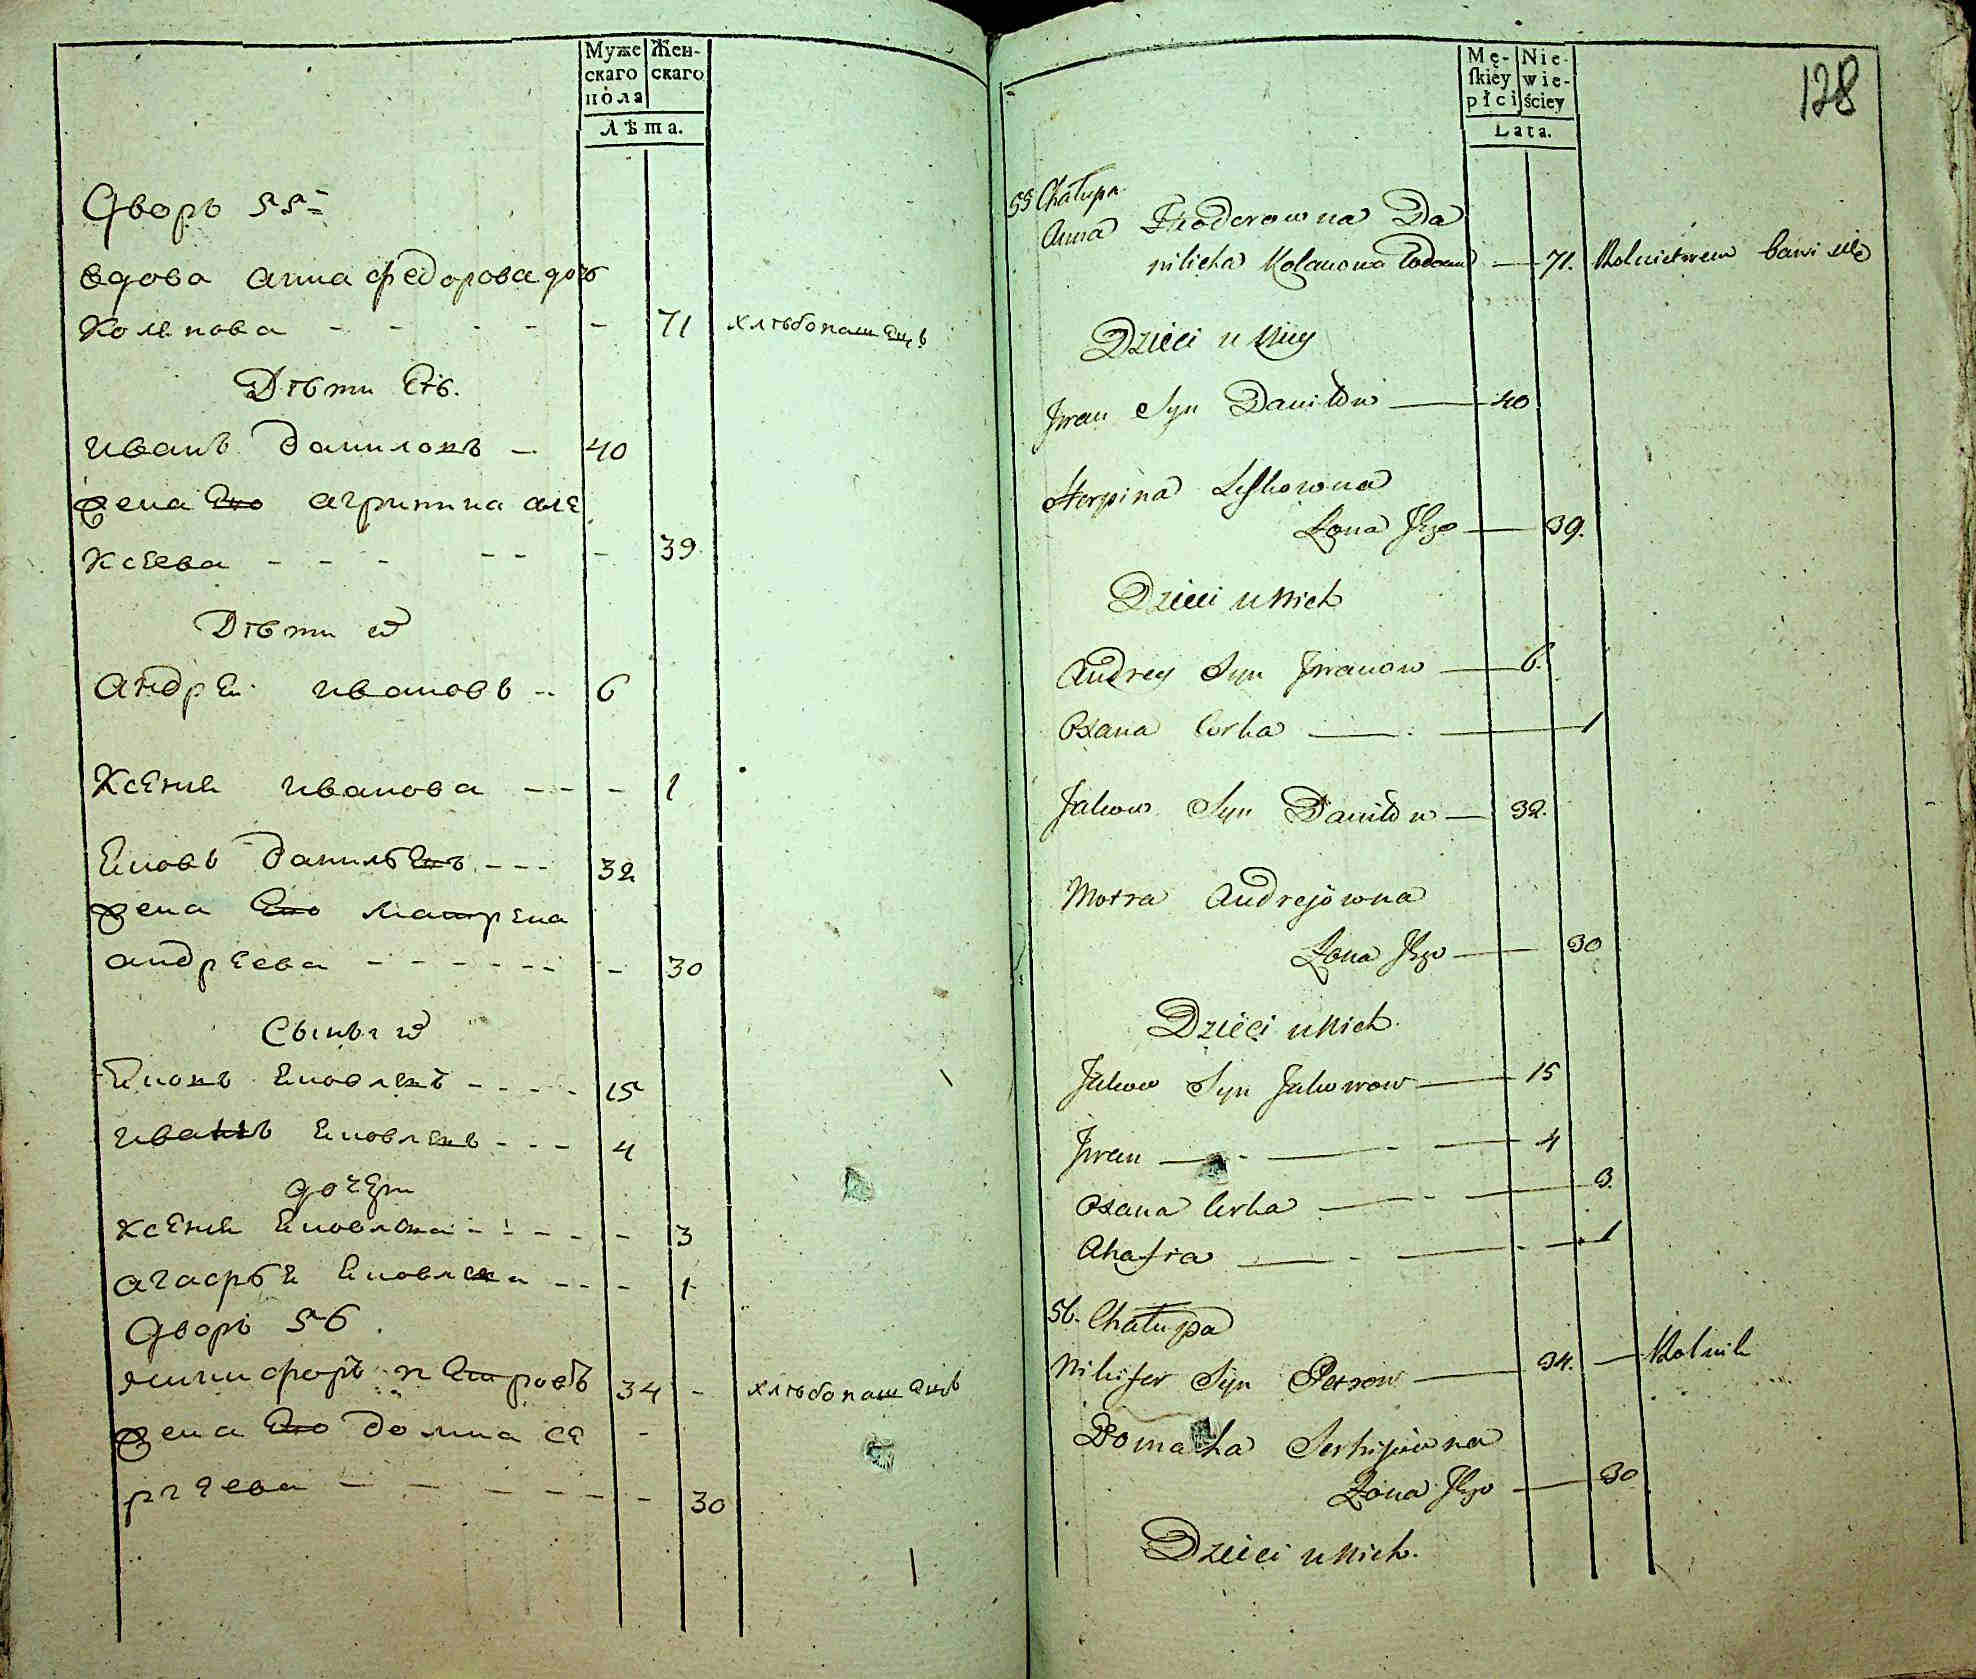 Муже Жен-
скаго скаго
пола
Лѣта.
Дворъ 55=
вдова анна федорова доч
Коленова - - - - - 71 хлѣбопашецъ
Дѣти Её.
иванъ даниловъ - 40
жена Его агрипина але
Ксеева - - - - - - 39
Дѣти их
андрей ивановъ - 6
Ксения иванова - - - 1
Яковъ данилевъ - - - 32
жена Его матрена
андреева - - - - - - - 30
Сыны их
Яковъ Яковлевъ - - - - 15
иванъ Яковлевъ - - - 4
дочери
Ксения Яковлева - - - - - 3
агафья Яковлева - - - 1
Дворъ 56.
никифоръ петровъ 34 - хлѣбопашецъ
жена Его домна се
ргеева - - - - - - - 30
128
Mę- Nie-
ſkiey wie-
płci ściey
Lata.
55 Chałupa
Anna Fiodorowna Da
nilicha Kolanowa wdowa — 71. Rolnictwem bawi się
Dzieci u Niey
Jwan Syn Daniłow — 40
Horpina Leskowna
Żona Jego — 39.
Dzieci u Nich
Andrey Syn Jwanow — 6.
Oxana Corka — 1
Jakow Syn Daniłow — 32.
Motra Andrejowna
Żona Jego — 30
Dzieci u Nich.
Jakow Syn Jakowow — 15
Jwan — 4
Oxana Corka — 3.
Ahafia — 1
56. Chałupa
Nikifor Syn Petrow — 34. — Rolnik
Domacha Serhijowna
Żona Jego — 30
Dzieci u Nich.